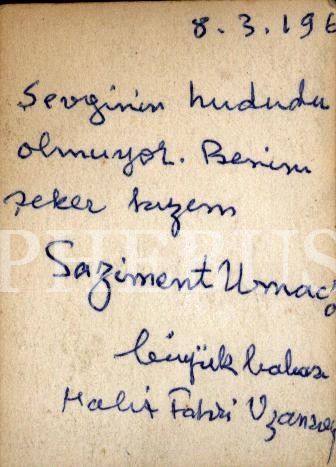 8.3.196
Sevginin hududu
olmuyor. Benim
şeker kızım
Saziment Umaç
büyük baban
Halit Fahri Ozansoy
PHEBUS